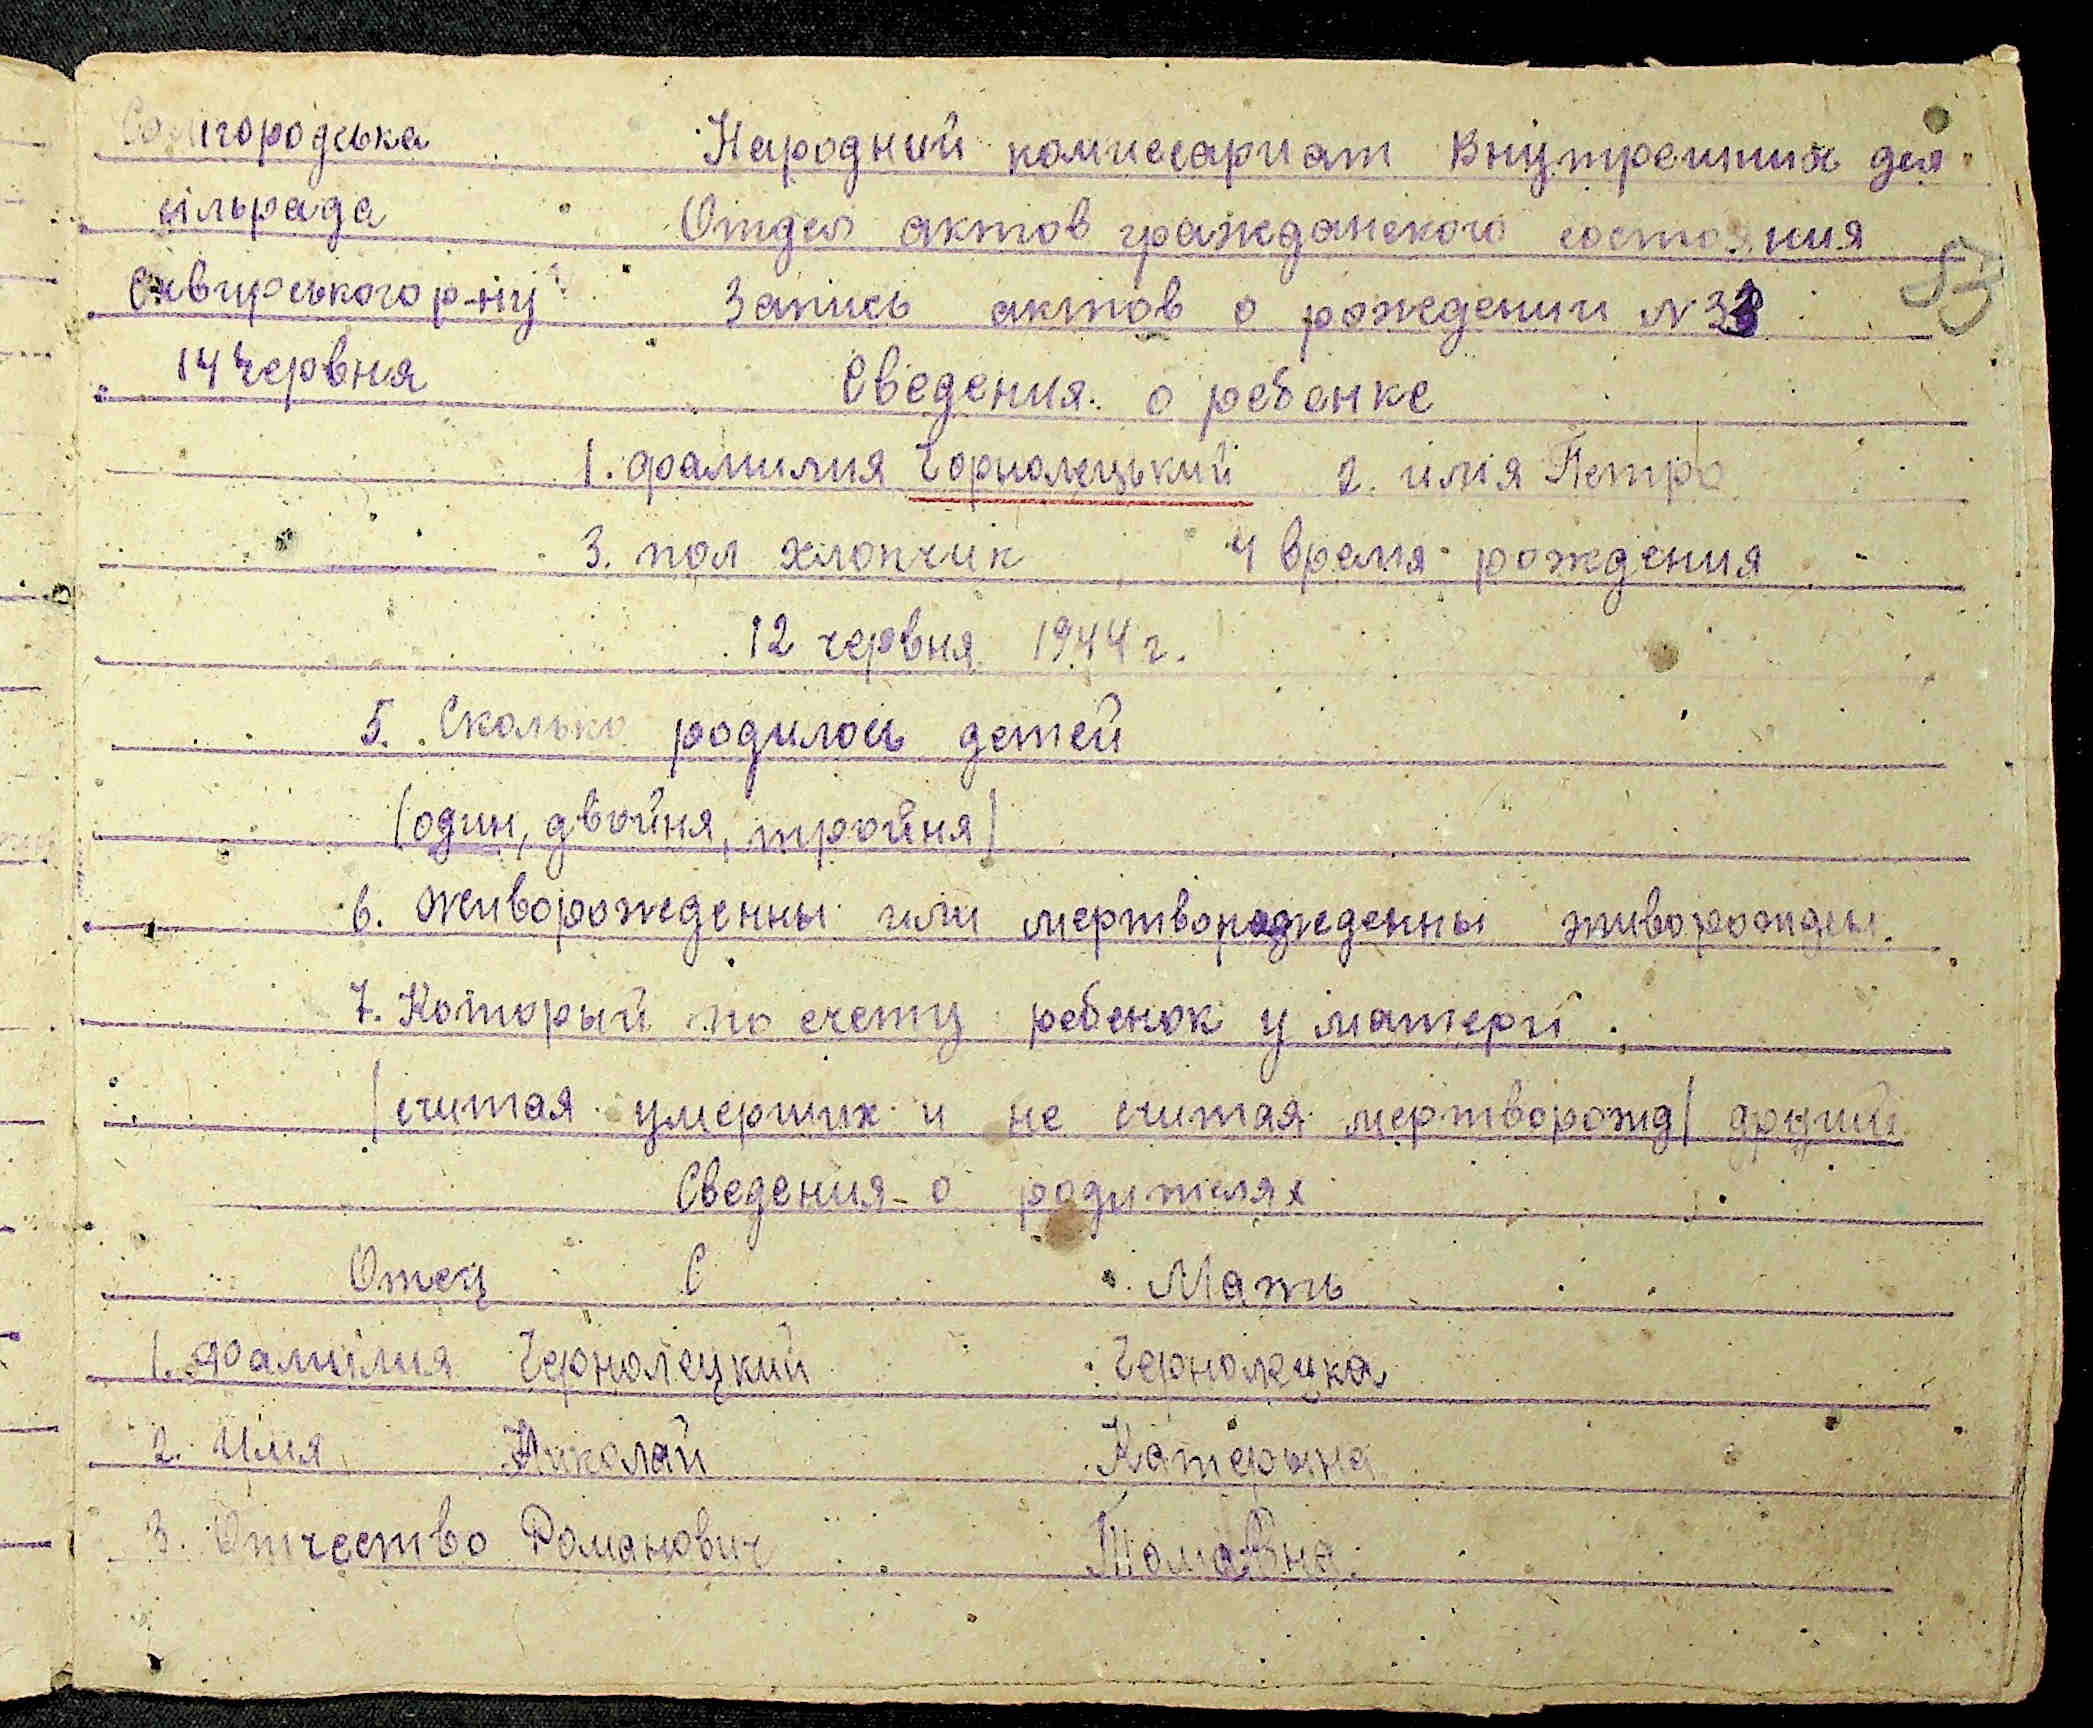 Самгородська Народний комиссариат Внутренних дел
сільрада Отдел актов гражданского состояния
Сквирського р-ну Запись актов о рождении № 33
53
14 червня Сведения о ребенке
1. фамилия Чорнолецький 2. имя Петро
3. пол хлопчик 4 время рождения
12 червня 1944 г.
5. Сколько родилось детей
/один, двойня, тройня/
6. Живорожденны или мертворожденны живорожден.
7. Который по счету ребенок у матери
/считая умерших и не считая мертворожд/ другий
Сведения о родителях
Отец С Мать
1. Фамилия Чернолецкий Чернолецка
2. Имя Николай Катерина
3. Отчество Романович Томовна